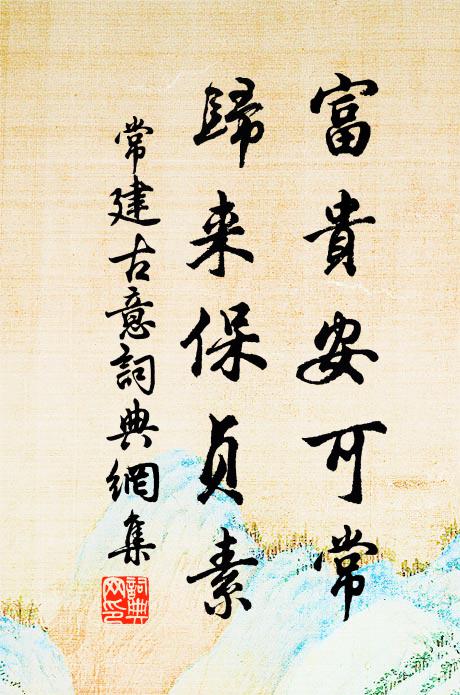 富貴安可常
歸来保貞素
常建古意詞典網集